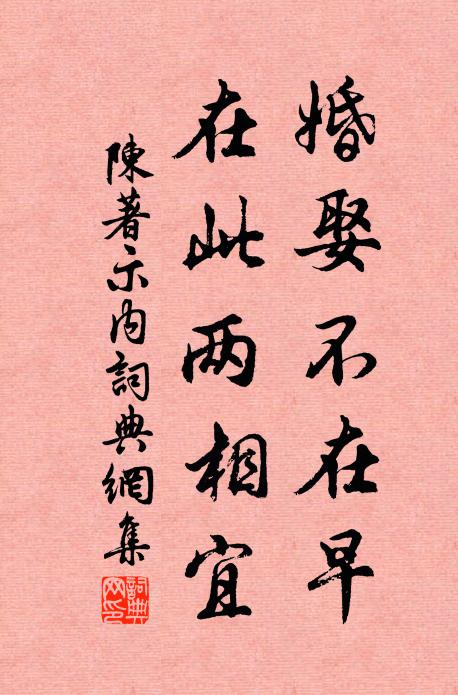 婚娶不在早
在此两相宜
陳著示內詞典網集
詞典網印